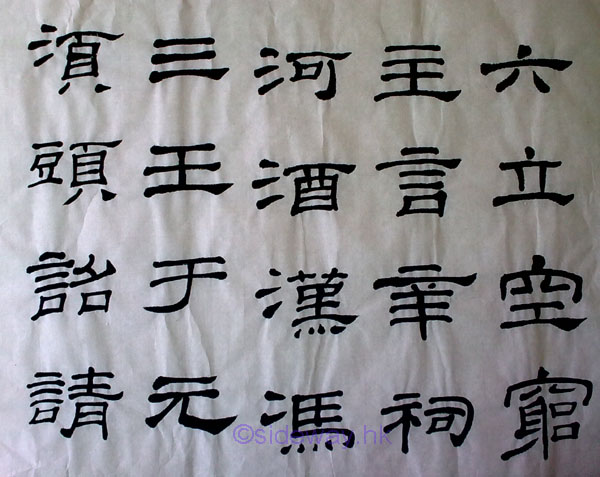 六立空窮
主言辛祠
河酒漢馮
三王于元
須頭詔請
©sideway.hk